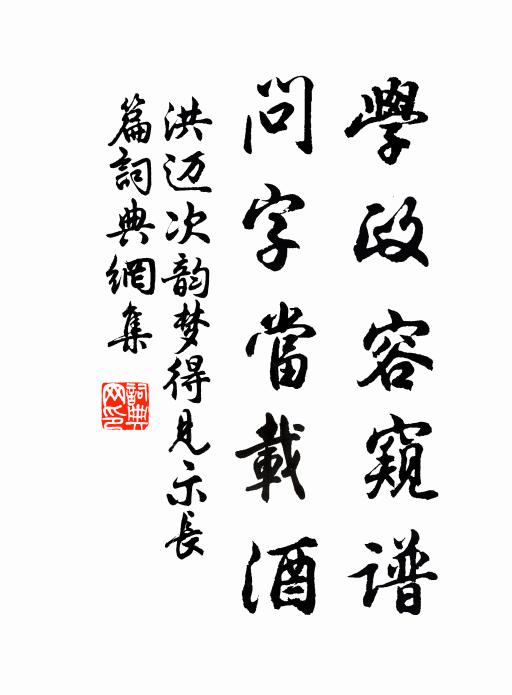 學政容窺谱
問字當載酒
洪迈次韵梦得见示長
篇詞典網集
詞典
网印